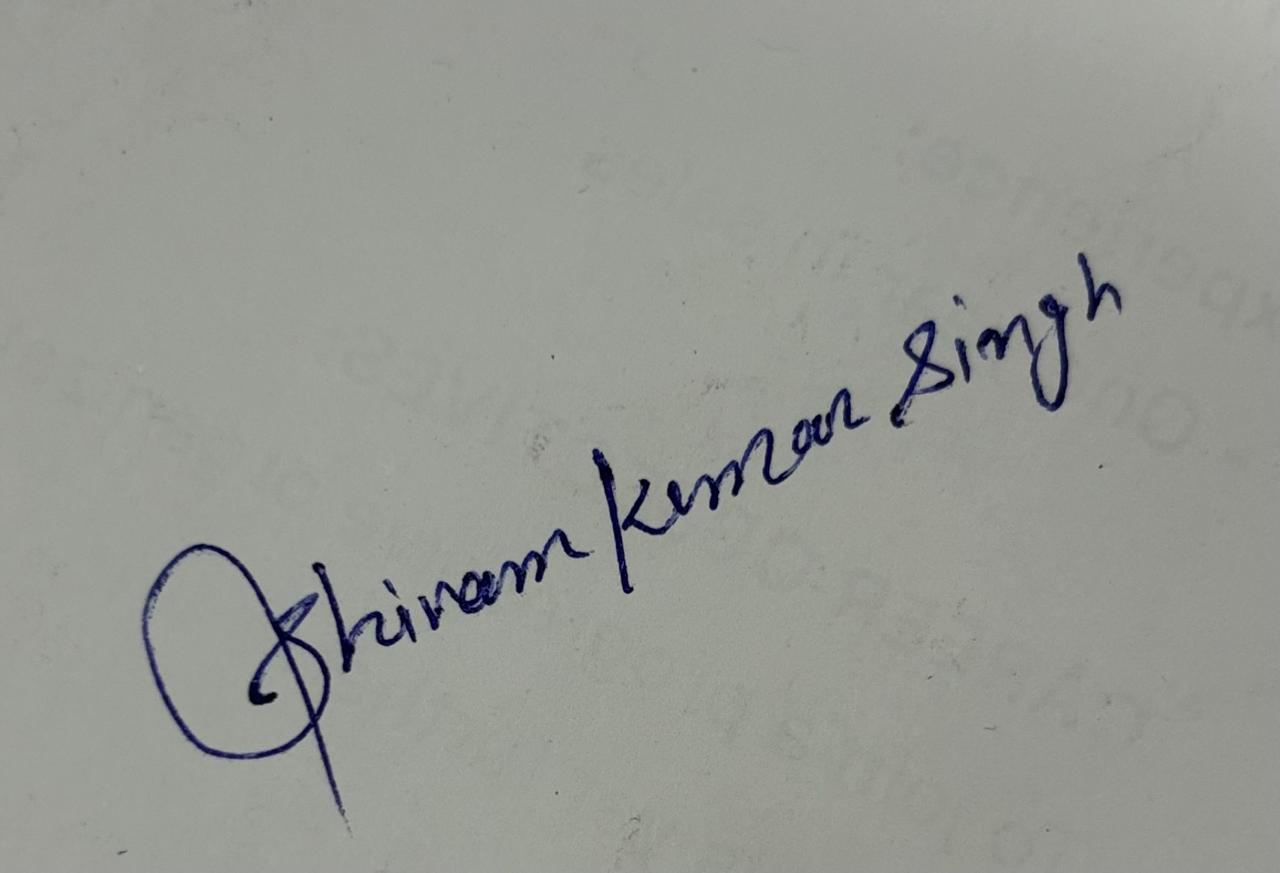 Shivam Kumar Singh